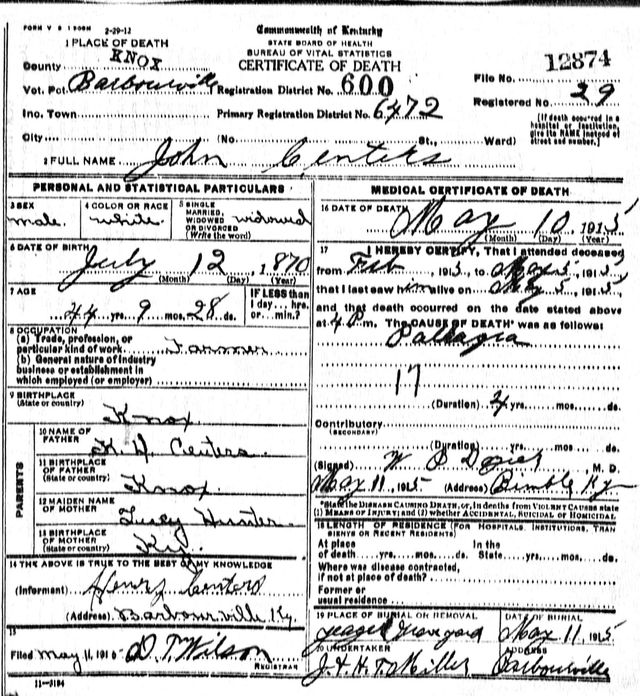 FORM V S 1 500M 2-29-12
Commonwealth of Kentucky
STATE BOARD OF HEALTH
BUREAU OF VITAL STATISTICS
CERTIFICATE OF DEATH
1 PLACE OF DEATH
County KNOX
Vot. Pct. Barbourville
Registration District No. 600
File No. 12874
Inc. Town
Primary Registration District No. 6472
Registered No. 29
City (No. St., Ward)
[If death occurred in a hospital or institution, give its NAME instead of street and number.]
2 FULL NAME John Centers
PERSONAL AND STATISTICAL PARTICULARS
3 SEX
male
4 COLOR OR RACE
white
5 SINGLE MARRIED, WIDOWED OR DIVORCED (Write the word)
widowed
6 DATE OF BIRTH
July 12, 1870
(Month) (Day) (Year)
7 AGE
44 yrs. 9 mos. 28 ds.
IF LESS than 1 day...hrs. or...min.?
8 OCCUPATION
(a) Trade, profession, or particular kind of work Farmer
(b) General nature of industry business or establishment in which employed (or employer)
9 BIRTHPLACE
(State or country)
Knox
PARENTS
10 NAME OF FATHER
Centers
11 BIRTHPLACE OF FATHER
(State or country)
Knox
12 MAIDEN NAME OF MOTHER
Lucy Hunter
13 BIRTHPLACE OF MOTHER
(State or country)
Ky.
14 THE ABOVE IS TRUE TO THE BEST OF MY KNOWLEDGE
(Informant) Henry Centers
(Address) Barbourville Ky.
15
Filed May 11, 1915 D. T. Wilson
REGISTRAR
11-3184
MEDICAL CERTIFICATE OF DEATH
16 DATE OF DEATH
May 10 1915
(Month) (Day) (Year)
17 I HEREBY CERTIFY, That I attended deceased
from Feb, 1915, to May 5, 1915
that I last saw him alive on May 5, 1915
and that death occurred on the date stated above
at 4 P m. The CAUSE OF DEATH* was as follows:
Pallagra
17
(Duration) yrs. mos. ds.
Contributory
(SECONDARY)
(Duration) yrs. mos. ds.
(Signed) W B, M. D.
May 11, 1915 (Address) Bimble Ky
*State the DISEASE CAUSING DEATH, or, in deaths from VIOLENT CAUSES state (1) MEANS OF INJURY; and (2) whether ACCIDENTAL, SUICIDAL or HOMICIDAL
18 LENGTH OF RESIDENCE (FOR HOSPITALS, INSTITUTIONS, TRANSIENTS OR RECENT RESIDENTS)
At place of death yrs. mos. ds. In the State yrs. mos. ds.
Where was disease contracted, if not at place of death?
Former or usual residence
19 PLACE OF BURIAL OR REMOVAL
Graveyard
DATE OF BURIAL
May 11, 1915
20 UNDERTAKER
J. & H. T. Miller
ADDRESS
Barbourville